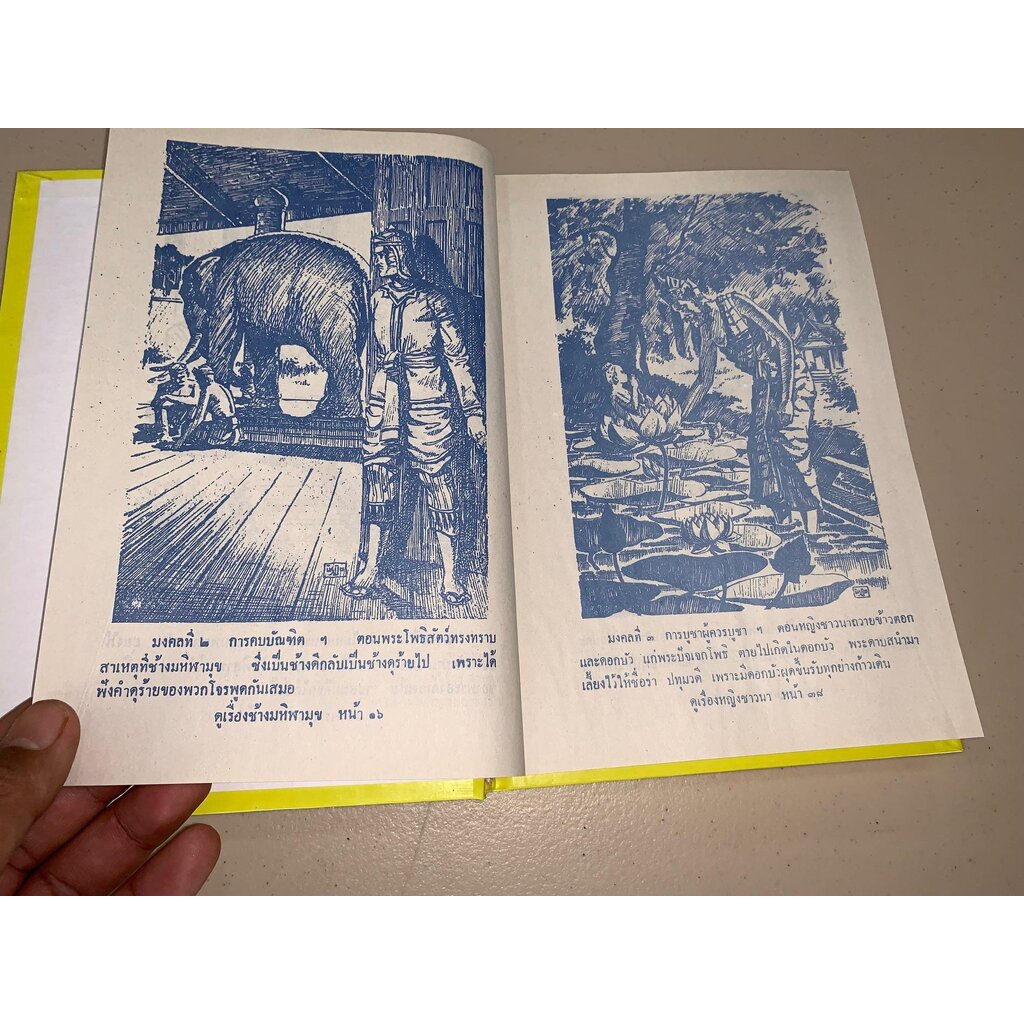 มงคลที่ ๒ การคบบัณฑิต ฯ ตอนพระโพธิสัตว์ทรงทราบ
สาเหตุที่ช้างมหิฬามุข ซึ่งเป็นช้างดีกลับเป็นช้างดุร้ายไป เพราะได้
ฟังคำดุร้ายของพวกโจรพูดกันเสมอ
ดูเรื่องช้างมหิฬามุข หน้า ๑๖
มงคลที่ ๓ การบูชาผู้ควรบูชา ฯ ตอนหญิงชาวนาถวายข้าวตอก
และดอกบัว แก่พระปัจเจกโพธิ ตายไปเกิดในดอกบัว พระดาบสนำมา
เลี้ยงไว้ให้ชื่อว่า ปทุมวดี เพราะมีดอกบัวผุดขึ้นรับทุกย่างก้าวเดิน
ดูเรื่องหญิงชาวนา หน้า ๓๘